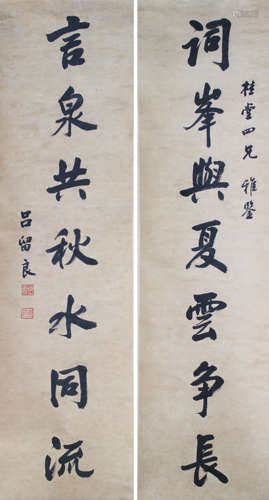 詞峯與夏雲争長
桂堂四兄 雅鑒
言泉共秋水同流
吕留良